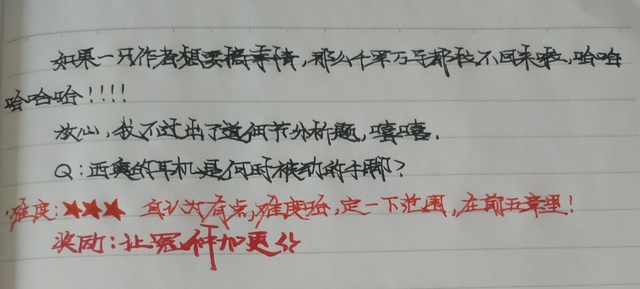 如果一只作者想要搞事情，那么千军万马都拉不回来啦，哈哈
哈哈哈！！！！
放心，我不过出了道细节分析题，嘻嘻。
Q：西奥的耳机是何时被动的手脚？
难度：★★★ 自认为有点难度哈，定一下范围，在前五章里！
奖励：让冠仔加更